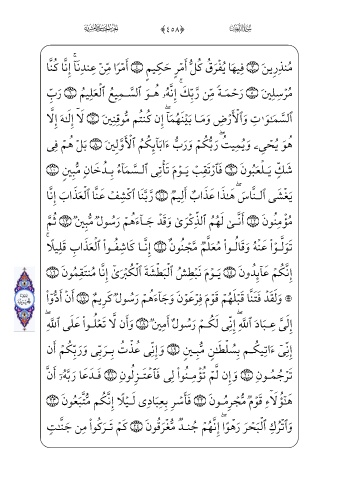 سُورَةُ الدُّخَانِ ﴿٤٥٨﴾ الجزء الخامس والعشرون
مُنذِرِينَ ۝ فِيهَا يُفْرَقُ كُلُّ أَمْرٍ حَكِيمٍ ۝ أَمْرًا مِّنْ عِندِنَآ ۚ إِنَّا كُنَّا
مُرْسِلِينَ ۝ رَحْمَةً مِّن رَّبِّكَ ۚ إِنَّهُۥ هُوَ ٱلسَّمِيعُ ٱلْعَلِيمُ ۝ رَبِّ
ٱلسَّمَٰوَٰتِ وَٱلْأَرْضِ وَمَا بَيْنَهُمَآ ۖ إِن كُنتُم مُّوقِنِينَ ۝ لَآ إِلَٰهَ إِلَّا
هُوَ يُحْىِۦ وَيُمِيتُ ۖ رَبُّكُمْ وَرَبُّ ءَابَآئِكُمُ ٱلْأَوَّلِينَ ۝ بَلْ هُمْ فِى
شَكٍّ يَلْعَبُونَ ۝ فَٱرْتَقِبْ يَوْمَ تَأْتِى ٱلسَّمَآءُ بِدُخَانٍ مُّبِينٍ ۝
يَغْشَى ٱلنَّاسَ ۖ هَٰذَا عَذَابٌ أَلِيمٌ ۝ رَّبَّنَا ٱكْشِفْ عَنَّا ٱلْعَذَابَ إِنَّا
مُؤْمِنُونَ ۝ أَنَّىٰ لَهُمُ ٱلذِّكْرَىٰ وَقَدْ جَآءَهُمْ رَسُولٌ مُّبِينٌ ۝ ثُمَّ
تَوَلَّوْا۟ عَنْهُ وَقَالُوا۟ مُعَلَّمٌ مَّجْنُونٌ ۝ إِنَّا كَاشِفُوا۟ ٱلْعَذَابِ قَلِيلًا ۚ
إِنَّكُمْ عَآئِدُونَ ۝ يَوْمَ نَبْطِشُ ٱلْبَطْشَةَ ٱلْكُبْرَىٰٓ إِنَّا مُنتَقِمُونَ ۝
۞ وَلَقَدْ فَتَنَّا قَبْلَهُمْ قَوْمَ فِرْعَوْنَ وَجَآءَهُمْ رَسُولٌ كَرِيمٌ ۝ أَنْ أَدُّوٓا۟
إِلَىَّ عِبَادَ ٱللَّهِ ۖ إِنِّى لَكُمْ رَسُولٌ أَمِينٌ ۝ وَأَن لَّا تَعْلُوا۟ عَلَى ٱللَّهِ ۖ
إِنِّىٓ ءَاتِيكُم بِسُلْطَٰنٍ مُّبِينٍ ۝ وَإِنِّى عُذْتُ بِرَبِّى وَرَبِّكُمْ أَن
تَرْجُمُونِ ۝ وَإِن لَّمْ تُؤْمِنُوا۟ لِى فَٱعْتَزِلُونِ ۝ فَدَعَا رَبَّهُۥٓ أَنَّ
هَٰٓؤُلَآءِ قَوْمٌ مُّجْرِمُونَ ۝ فَأَسْرِ بِعِبَادِى لَيْلًا إِنَّكُم مُّتَّبَعُونَ ۝
وَٱتْرُكِ ٱلْبَحْرَ رَهْوًا ۖ إِنَّهُمْ جُندٌ مُّغْرَقُونَ ۝ كَمْ تَرَكُوا۟ مِن جَنَّٰتٍ